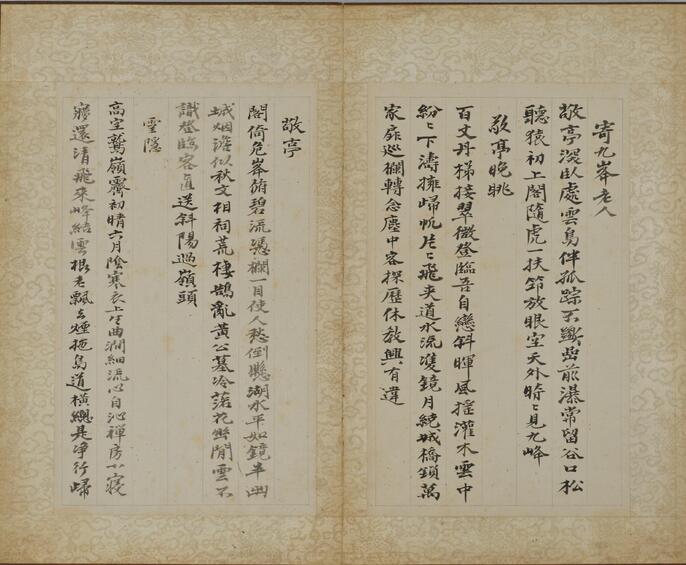 寄九峯老人
敬亭深臥處雲鳥伴孤踪不斷嵒前瀑常留谷口松
聽猿初上閣隨虎一扶筇放眼空天外時〻見九峰
敬亭晚眺
百丈丹梯接翠微登臨吾自戀斜暉風摇灌木雲中
紛〻下濤擁歸帆片〻飛夾道水流雙鏡月繞城橋鎖萬
家扉巡欄轉念塵中客探歷休教興有違
敬亭
閣倚危峯俯碧流憑欄一目使人愁倒懸湖水平如鏡半幽
城烟澹似秋文相祠荒棲鵲亂黄公墓冷落花幽閒雲不
識登臨客直送斜陽過嶺頭
雲隱
高空鷲嶺霽初晴六月陰寒衣上生曲澗細流心自沁禪房不寢
夢還清飛來峰結雲根老飄去煙拖鳥道横總是净行歸